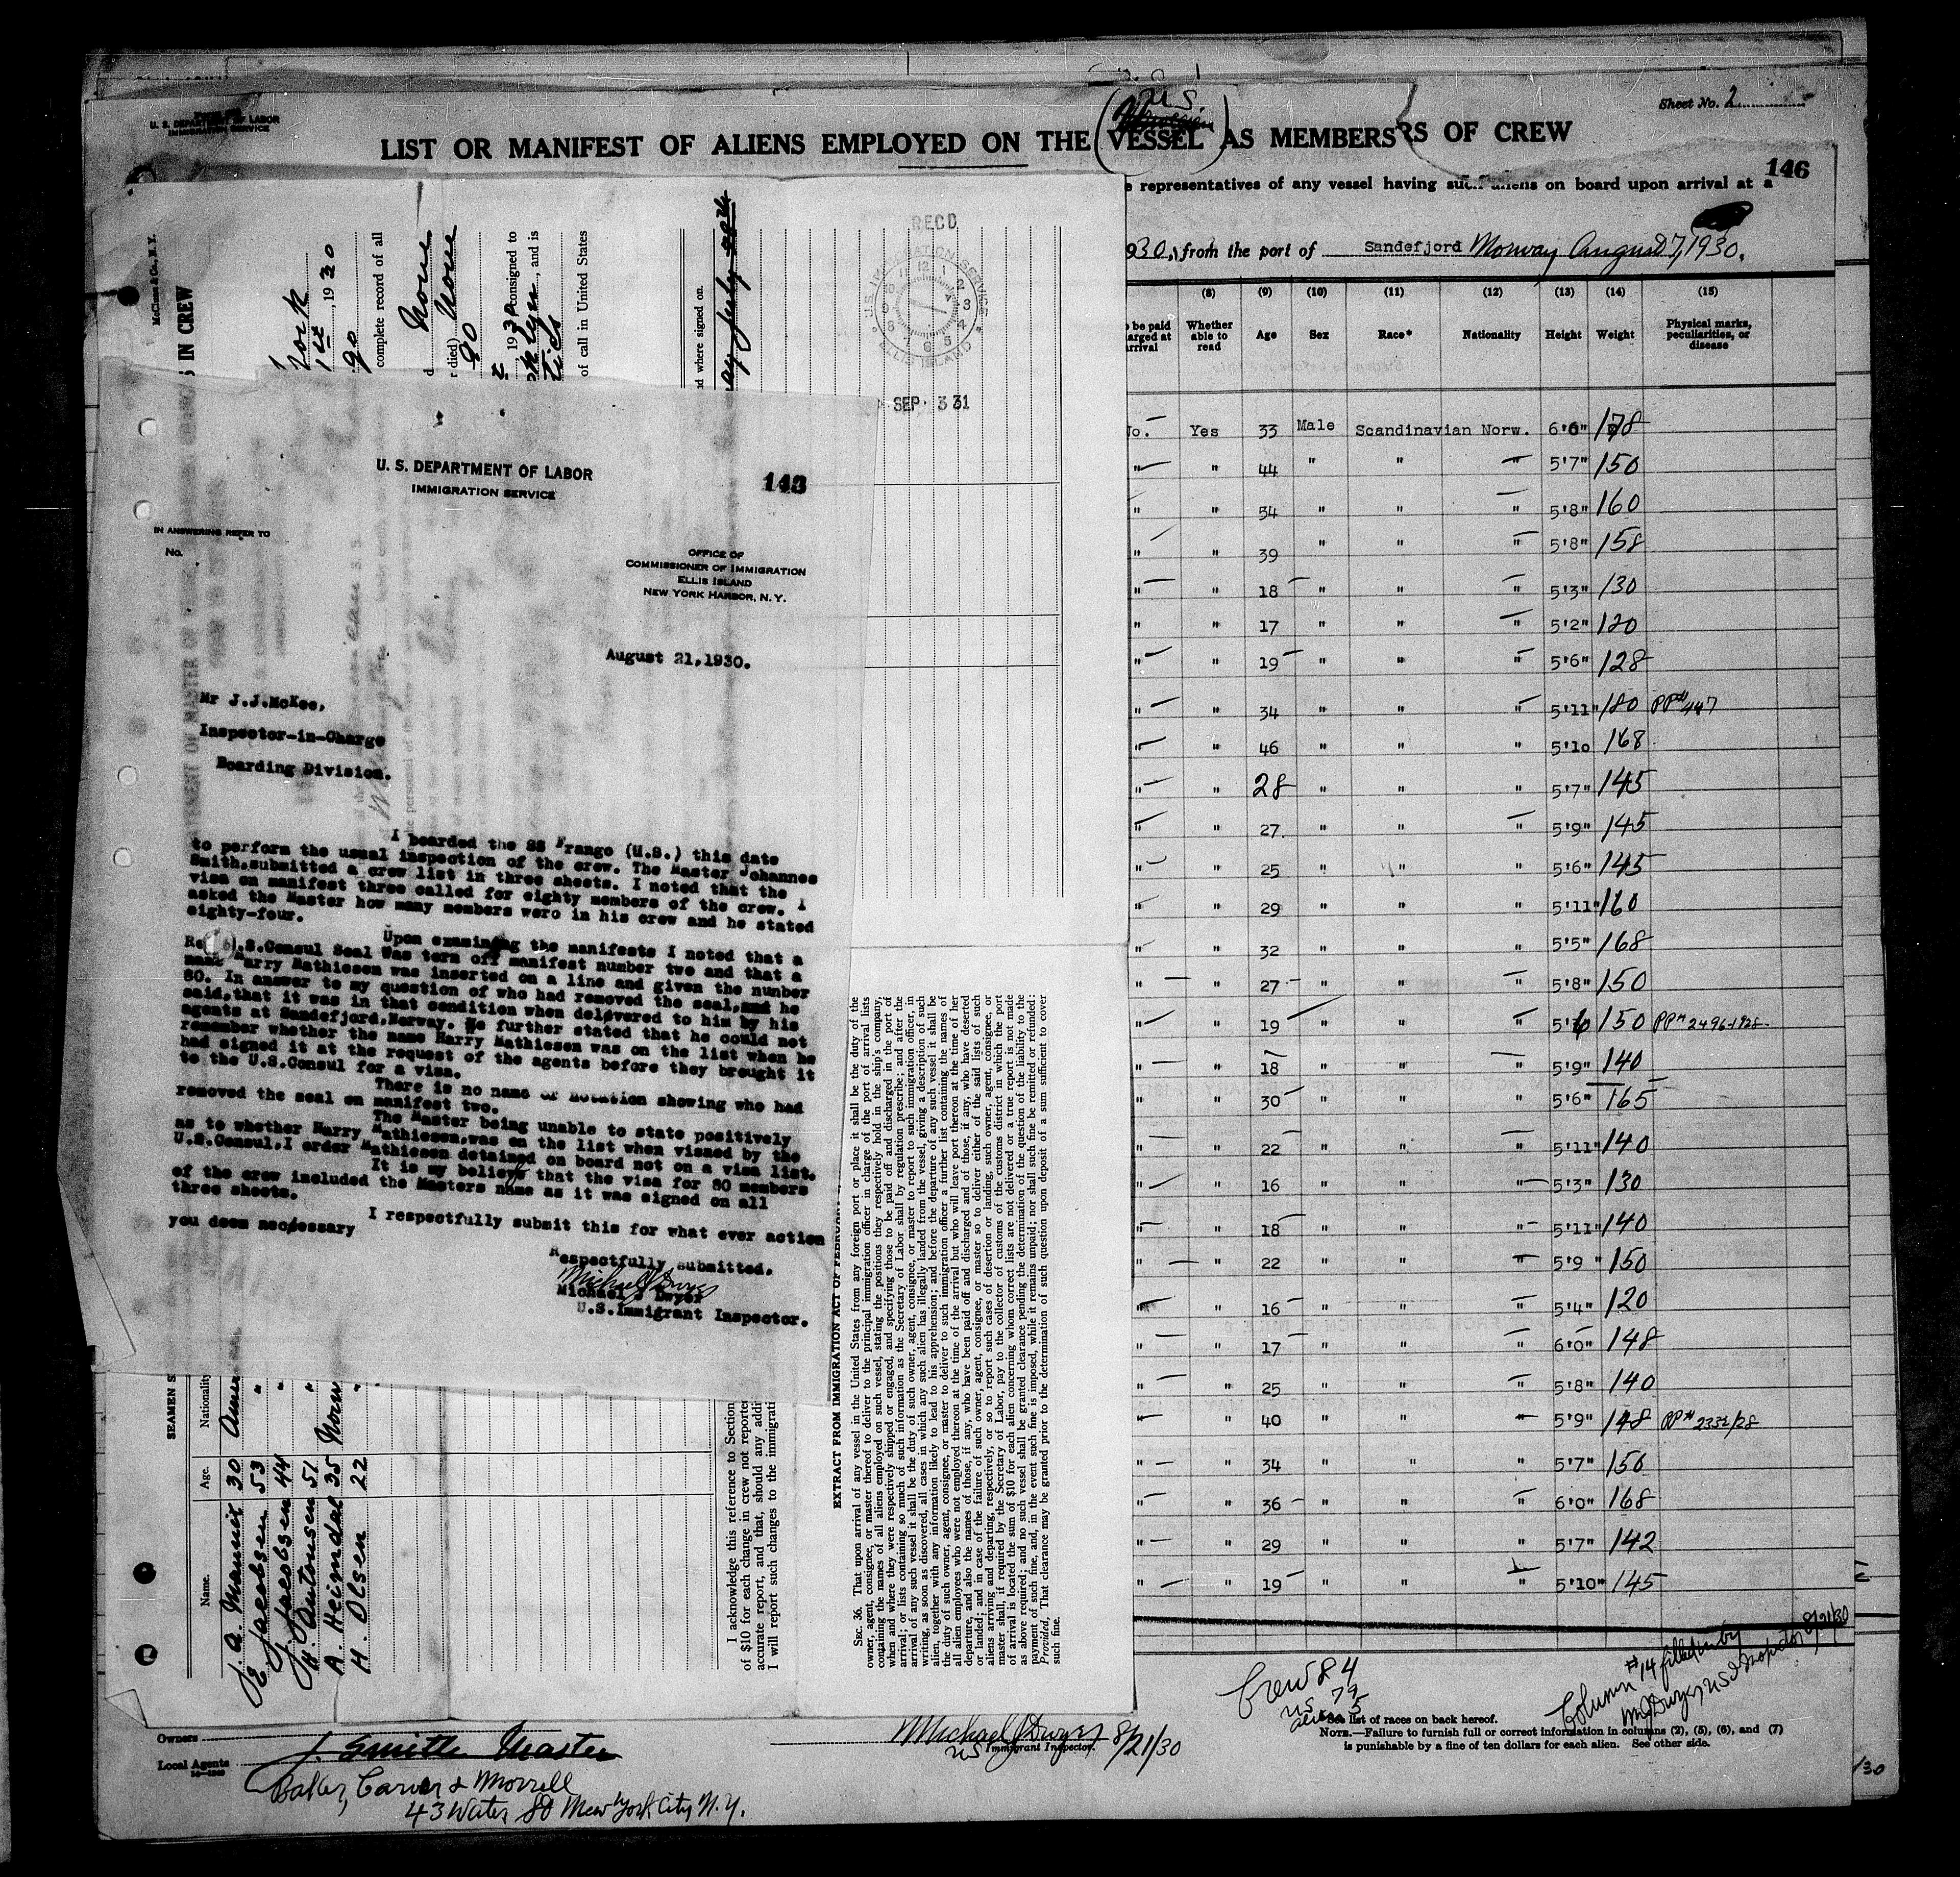 U. S. DEPARTMENT OF LABOR
IMMIGRATION SERVICE
Sheet No. 2
U.S.
LIST OR MANIFEST OF ALIENS EMPLOYED ON THE VESSEL AS MEMBERS RS OF CREW
146
representatives of any vessel having such aliens on board upon arrival at a
930, from the port of Sandefjord Norway August 7, 1930.
(8) (9) (10) (11) (12) (13) (14) (15)
Whether able to read Age Sex Race* Nationality Height Weight Physical marks, peculiarities, or disease
No. Yes 33 Male Scandinavian Norw. 6'0" 178
" " 44 " " " 5'7" 150
" " 54 " " " 5'8" 160
" " 39 " " " 5'8" 158
" " 18 " " " 5'3" 130
" " 17 " " " 5'2" 120
" " 19 " " " 5'6" 128
" " 34 " " " 5'11" 180 PP# 447
" " 46 " " " 5'10 168
" " 28 " " " 5'7" 145
" " 27 " " " 5'9" 145
" " 25 " " " 5'6" 145
" " 29 " " " 5'11" 160
" " 32 " " " 5'5" 168
" " 27 " " " 5'8" 150
" " 19 " " " 150 PP# 2496-1928
" " 18 " " " 5'9" 140
" " 30 " " " 5'6" 165
" " 22 " " " 5'11" 140
" " 16 " " " 5'3" 130
" " 18 " " " 5'11" 140
" " 22 " " " 5'9 " 150
" " 16 " " " 5'4" 120
" " 17 " " " 6'0" 148
" " 25 " " " 5'8" 140
" " 40 " " " 5'9" 148 PP# 2332/28
" " 34 " " " 5'7" 150
" " 36 " " " 6'0" 168
" " 29 " " " 5'7" 142
" " 19 " " " 5'10" 145
Crew 84
US 79
aliens 5
Column #14 filled in by
M J Dwyer US I Inspector 8/21/30
See list of races on back hereof.
NOTE.—Failure to furnish full or correct information in columns (2), (5), (6), and (7)
is punishable by a fine of ten dollars for each alien. See other side.
Michael J Dwyer 8/21/30
US Immigrant Inspector.
Owners
J. Smith Master
Local Agents
Baker, Carver & Morrell
43 Water St New York City N.Y.
McClees & Co., N.Y.
S IN CREW
York
1st, 1930
90
complete record of all
None
None
90
consigned to
, and is
of call in United States
d where signed on.
RECD
U.S. IMMIGRATION SERVICE
ELLIS ISLAND
SEP 3 31
U. S. DEPARTMENT OF LABOR
IMMIGRATION SERVICE
IN ANSWERING REFER TO
No.
OFFICE OF
COMMISSIONER OF IMMIGRATION
ELLIS ISLAND
NEW YORK HARBOR, N. Y.
August 21,1930.
Mr J.J.McKee,
Inspector-in-Charge
Boarding Division.
I boarded the SS Frango (U.S.) this date
to perform the usual inspection of the crew. The Master Johannes
Smith,submitted a crew list in three sheets. I noted that the
visa on manifest three called for eighty members of the crew. I
asked the Master how many members were in his crew and he stated
eighty-four.
Upon examining the manifests I noted that a
.S.Consul Seal Was torn off manifest number two and that a
name Harry Mathiesen was inserted on a line and given the number
80. In answer to my question of who had removed the seal,and he
said,that it was in that condition when delevered to him by his
agents at Sandefjord,Norway. He further stated that he could not
remember whether the name Harry Mathiesen was on the list when he
had signed it at the request of the agents before they brought it
to the U.S.Consul for a visa.
There is no name or notation showing who had
removed the seal on manifest two.
The Master being unable to state positively
as to whether Harry Mathiesen,was on the list when visaed by the
U.S.Consul,I order Mathiesen detained on board not on a visa list.
It is my believe that the visa for 80 members
of the crew included the Masters name as it was signed on all
three sheets.
I respectfully submit this for what ever action
you deem neccessary
Respectfully submitted,
Michael J Dwyer
Michael J Dwyer
U.S.Immigrant Inspector.
SEAMEN S
Name. Age. Nationality
J. A. 30 Amer
E. Jacobsen 53 "
J. Jacobsen 44 "
H. Antonsen 51 "
A. Heimdal 35 Norw
H. Olsen 22 "
I acknowledge this reference to Section
of $10 for each change in crew not reported
accurate report, and that, should any addi
I will report such changes to the immigrati
EXTRACT FROM IMMIGRATION ACT OF FEBRUAR
SEC. 36. That upon arrival of any vessel in the United States from any foreign port or place it shall be the duty of the
owner, agent, consignee, or master thereof to deliver to the principal immigration officer in charge of the port of arrival lists
containing the names of all aliens employed on such vessel, stating the positions they respectively hold in the ship's company,
when and where they were respectively shipped or engaged, and specifying those to be paid off and discharged in the port of
arrival; or lists containing so much of such information as the Secretary of Labor shall by regulation prescribe; and after the
arrival of any such vessel it shall be the duty of such owner, agent, consignee, or master to report to such immigration officer, in
writing, as soon as discovered, all cases in which any such alien has illegally landed from the vessel, giving a description of such
alien, together with any information likely to lead to his apprehension; and before the departure of any such vessel it shall be
the duty of such owner, agent, consignee, or master to deliver to such immigration officer a further list containing the names of
all alien employees who were not employed thereon at the time of the arrival but who will leave port thereon at the time of her
departure, and also the names of those, if any, who have been paid off and discharged and of those, if any, who have deserted
or landed; and in case of the failure of such owner, agent, consignee, or master so to deliver either of the said lists of such
aliens arriving and departing, respectively, or so to report such cases of desertion or landing, such owner, agent, consignee, or
master shall, if required by the Secretary of Labor, pay to the collector of customs of the customs district in which the port
of arrival is located the sum of $10 for each alien concerning whom correct lists are not delivered or a true report is not made
as above required; and no such vessel shall be granted clearance pending the determination of the question of the liability to the
payment of such fine, and, in the event such fine is imposed, while it remains unpaid; nor shall such fine be remitted or refunded:
Provided, That clearance may be granted prior to the determination of such question upon deposit of a sum sufficient to cover
such fine.